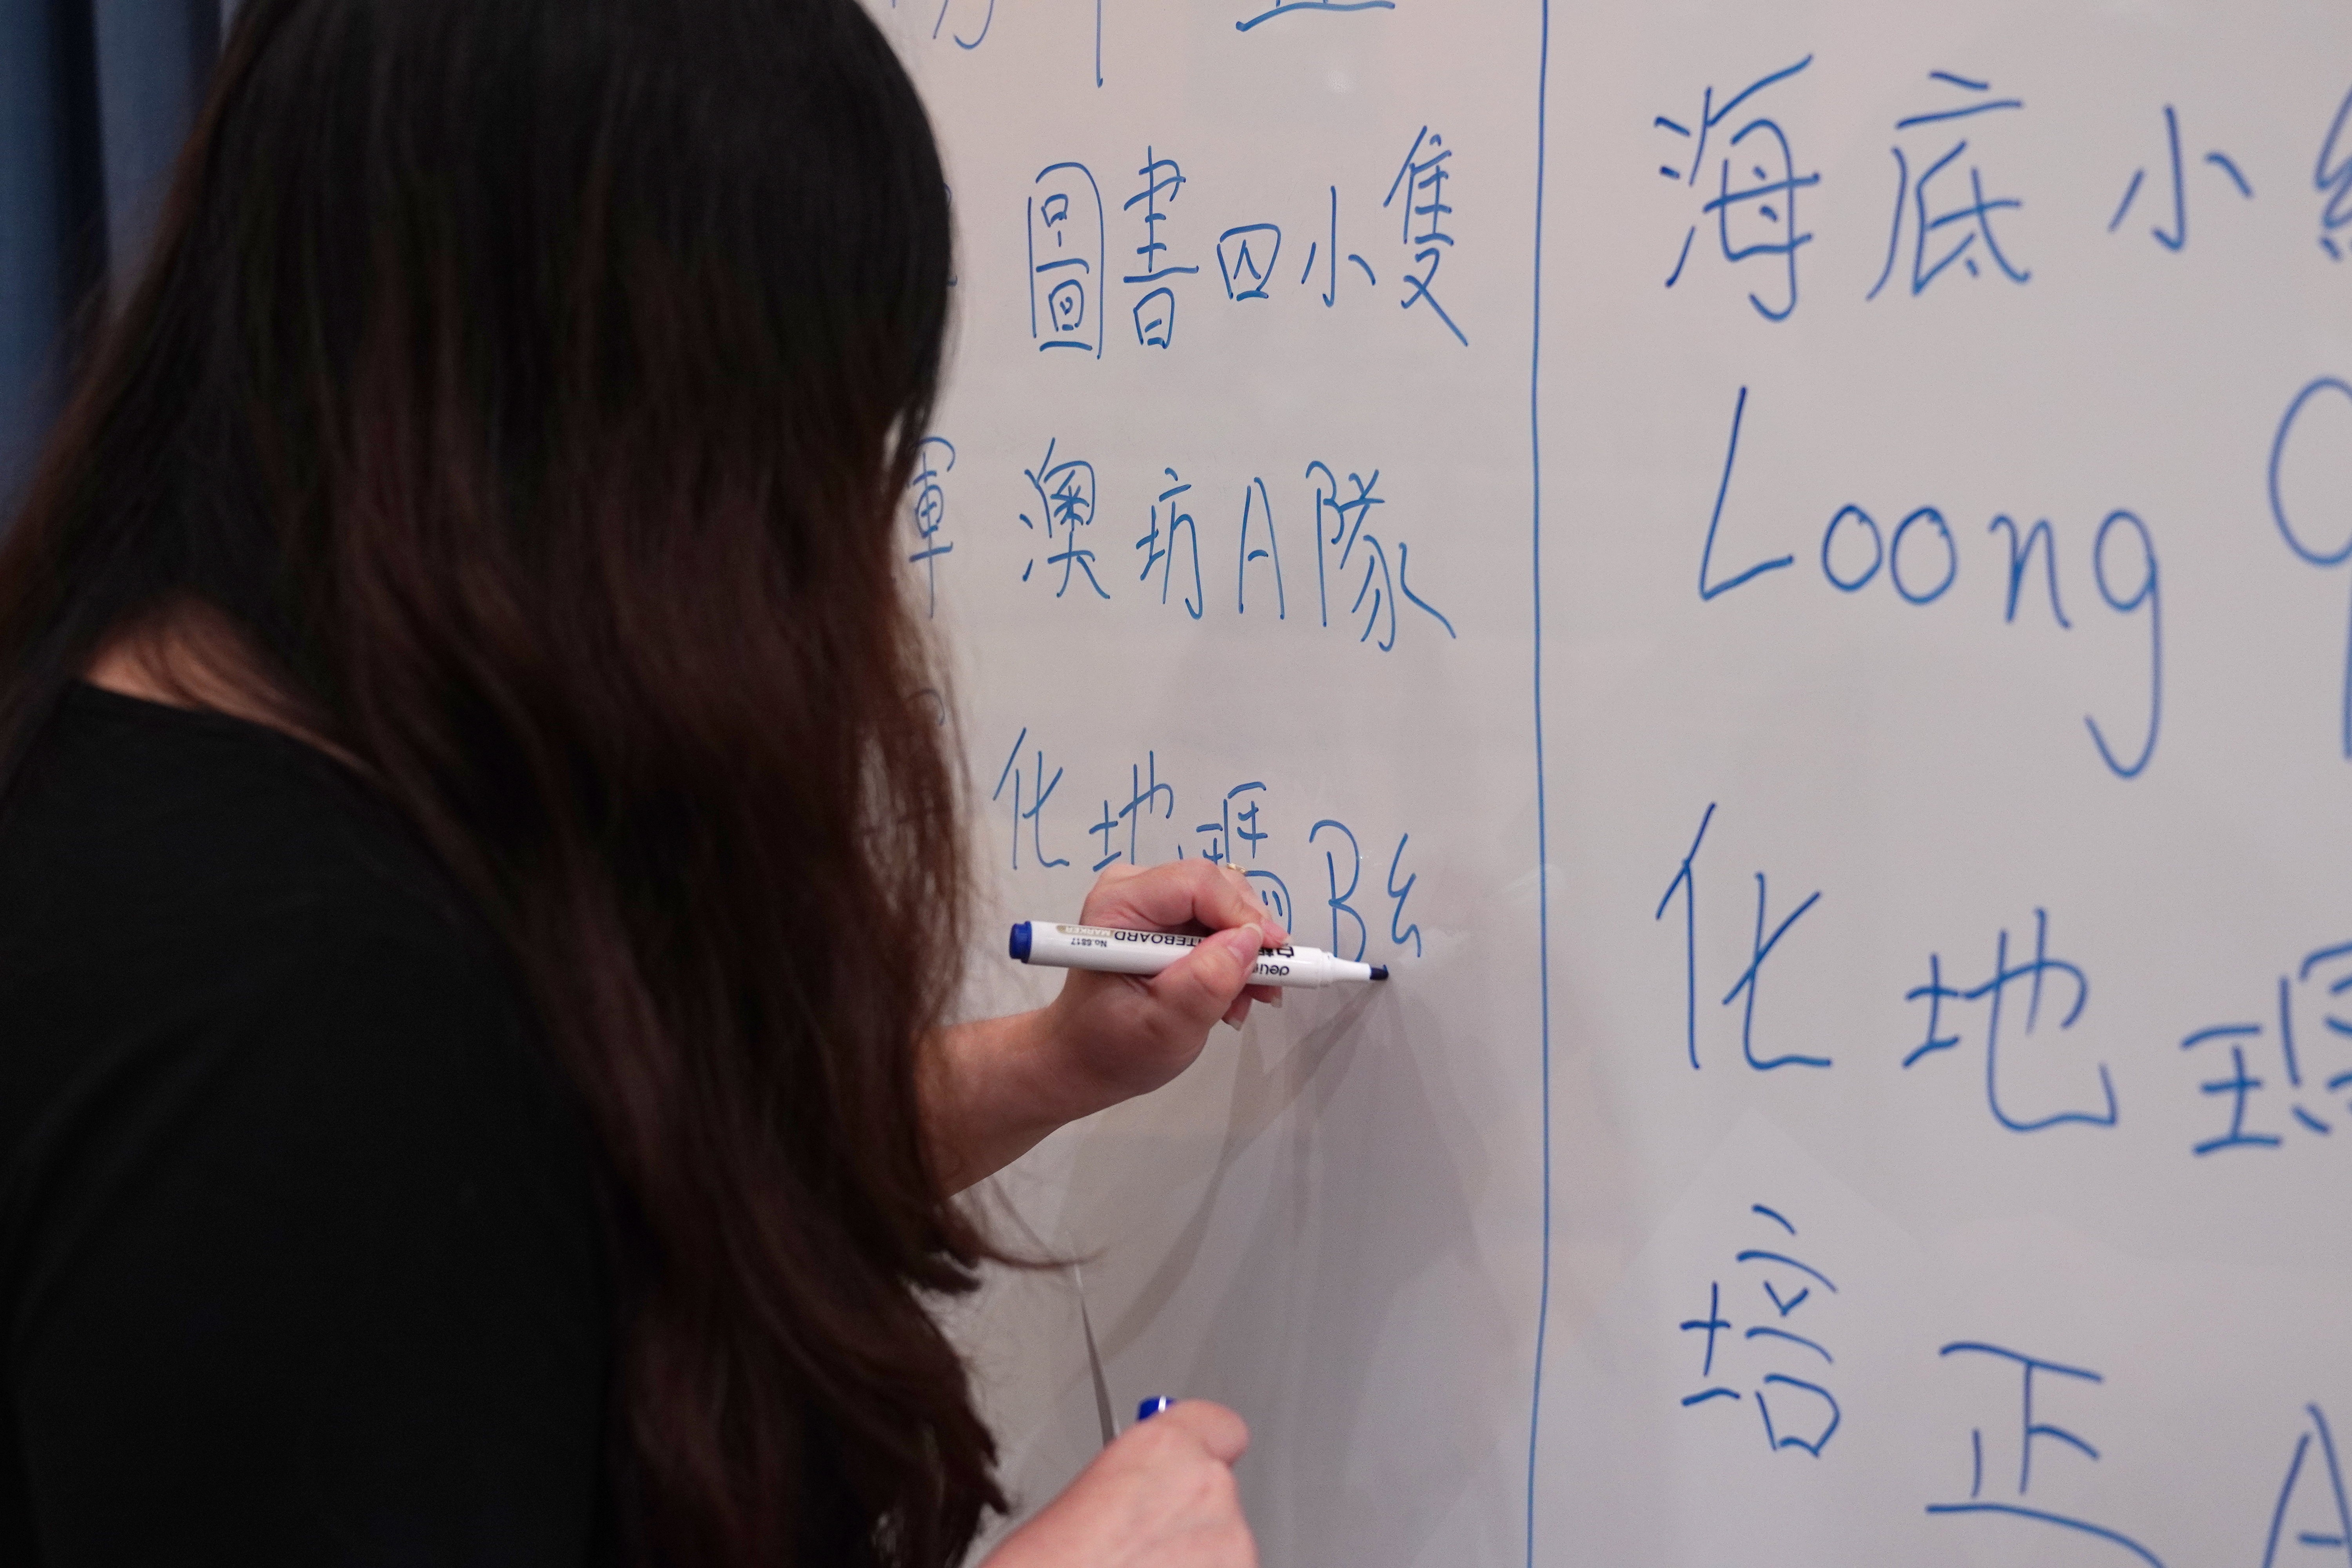 圖書四小隻
軍 澳坊A隊
化地瑪B
海底小
Loong
化地瑪
培正A
WHITEBOARD MARKER No.6817
deli